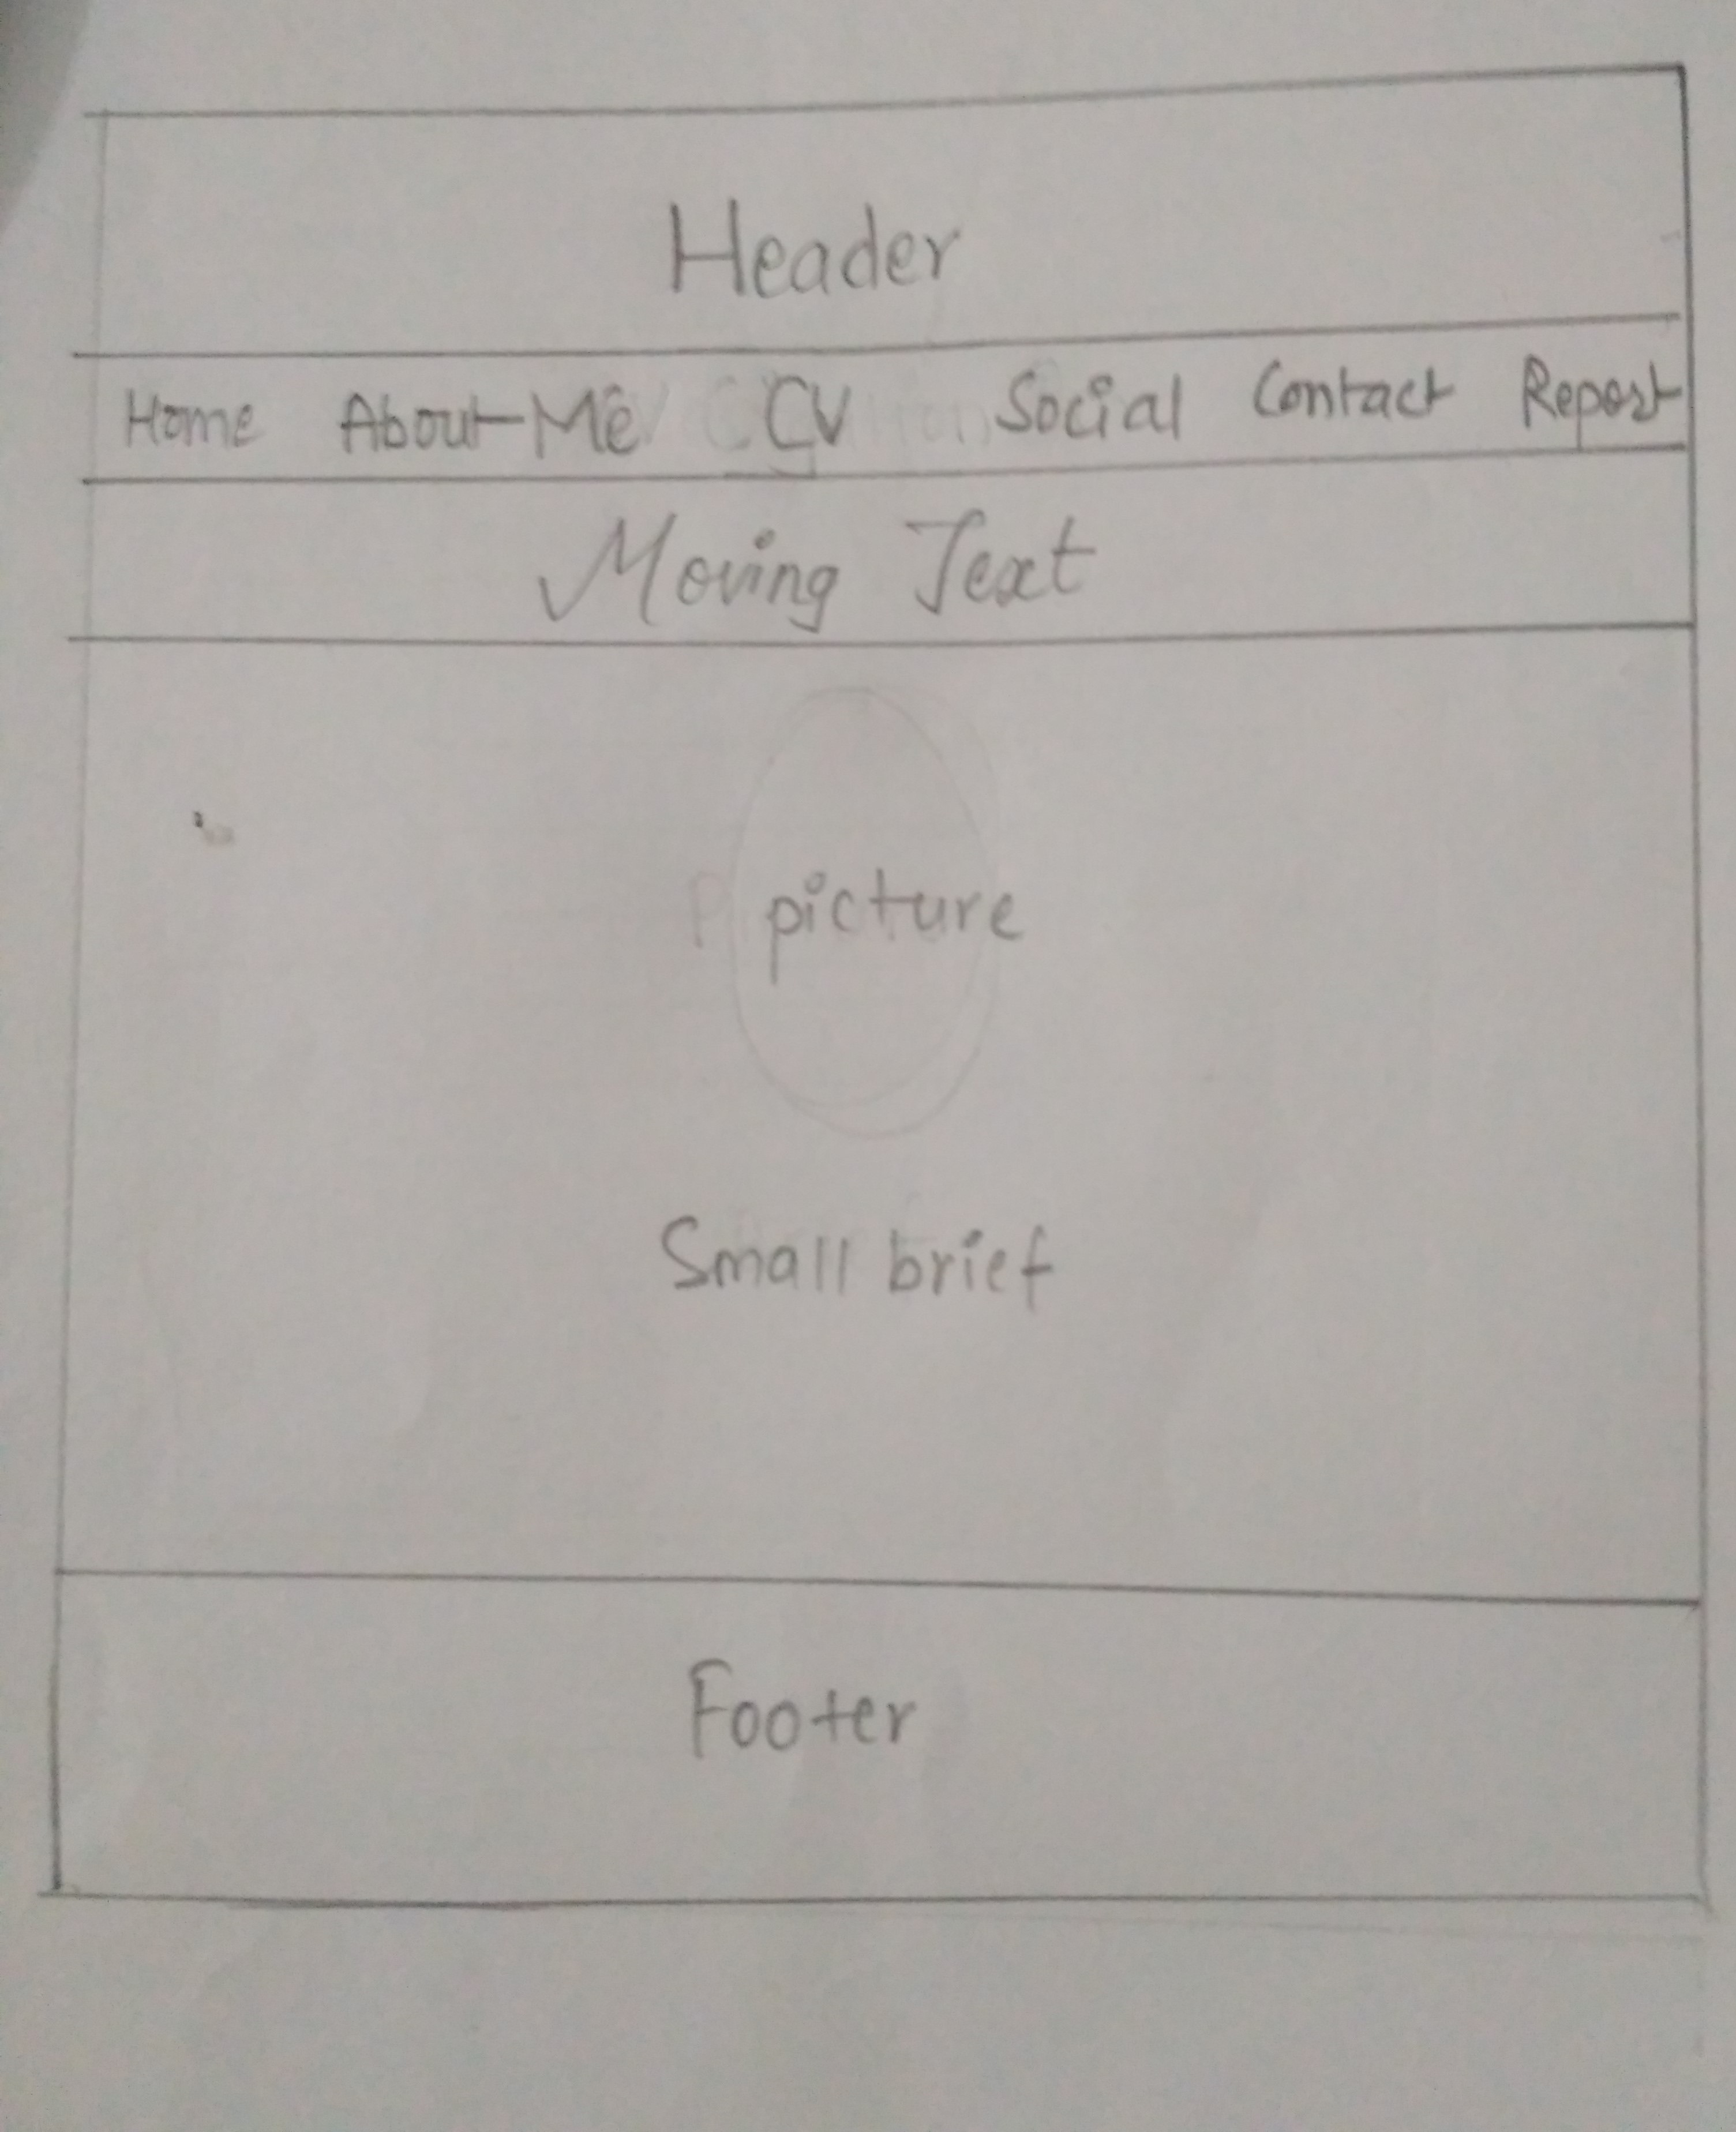 Header
Home About-Me CV Social Contact Report
Moving Text
picture
Small brief
Footer